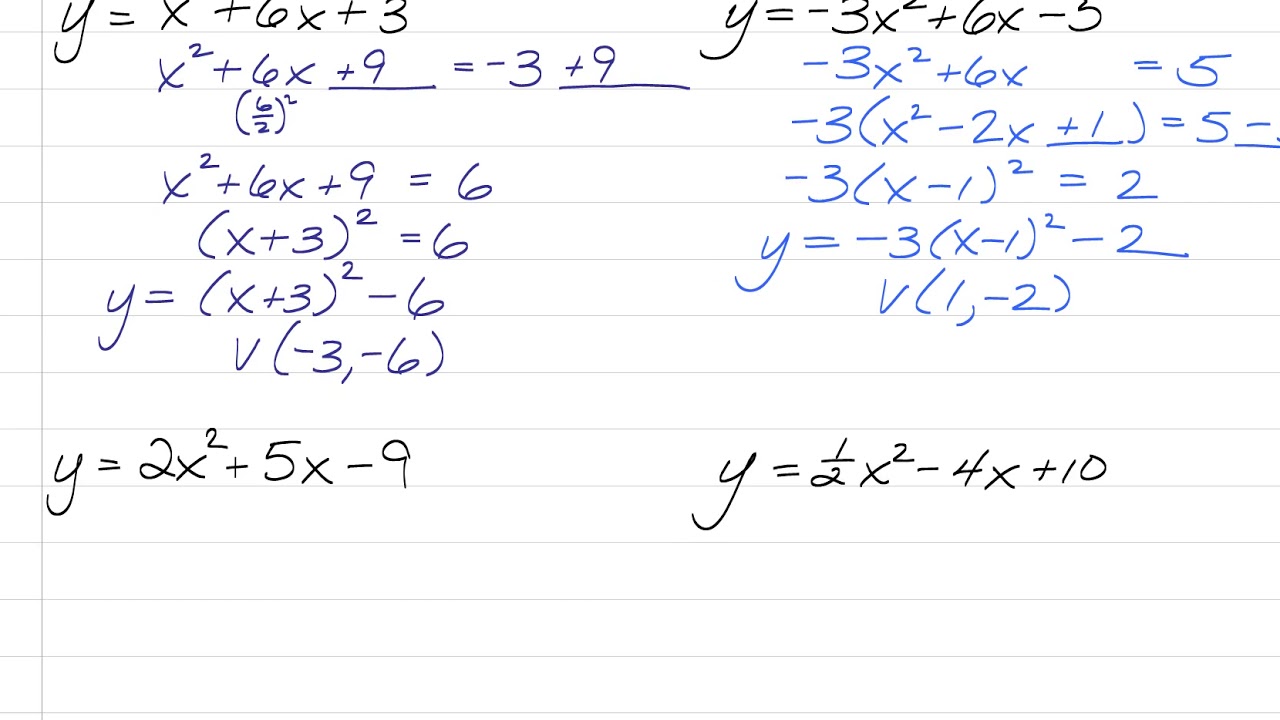 y = x² + 6x + 3
x² + 6x +9 = -3 +9
(6/2)²
x² + 6x + 9 = 6
(x+3)² = 6
y = (x+3)² - 6
V(-3, -6)
y = -3x² + 6x - 5
-3x² + 6x = 5
-3(x² - 2x +1) = 5 -
-3(x-1)² = 2
y = -3(x-1)² - 2
V(1, -2)
y = 2x² + 5x - 9
y = 1/2x² - 4x + 10